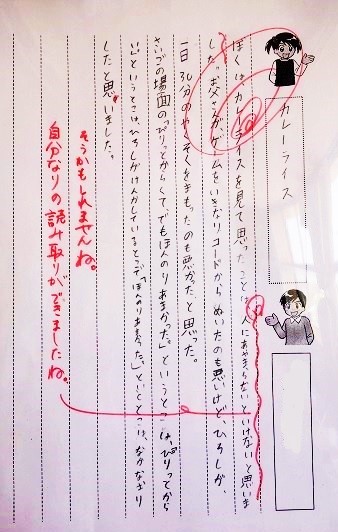 カレーライス
ぼくはカレーライスを見て思ったことは、人にあやまらないといけないと思いま
した。お父さんが、ゲームをいきなりコードからぬいたのも悪いけど、ひろしが、
一日30分のやくそくをまもったのも悪かったと思った。
さいごの場面の「ぴりっとからくて、でもほんのりあまかった。」というとこは、ぴりってから
い」ということは、ひろしがけんかしているとこで「ほんのりあまかった。」というとこは、なかなおり
したと思いました。
そうかもしれませんね。
自分なりの読み取りができましたね。